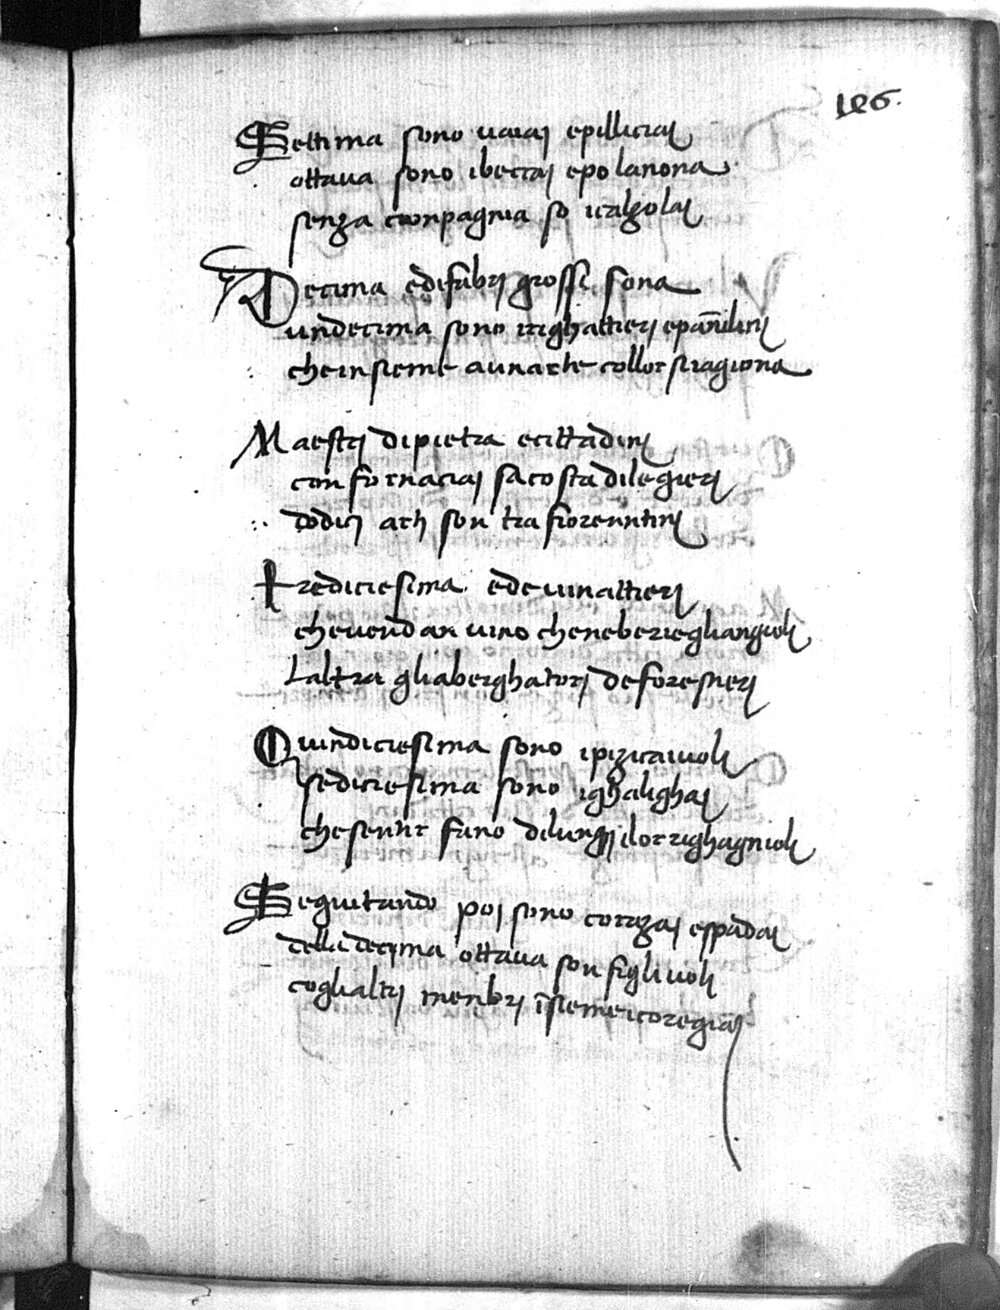 186.
Settima sono vaiaj epilliciaj
ottava sono ibeccaj epo lanona
senza chonpagnia so icalzolaj
Decima edefabrj grossi sona
undecima sono irighattierj epannilinj
cheinsieme aunarte collor siragiona
Maestrj dipietra ecittadinj
con fornaciaj sacosta dilegierj
dodicj arti son tra fiorentinj
Trediciesima ede vinattierj
chevendan vino cheneberiegliangioli
Laltra glialberghatorj deforestierj
Quindiciesima sono ipizicaiuoli
sediciesima sono ighalighaj
chesentir fano dilungj ilor righagnioli
Seguitando poj sono corazaj espadaj
della decima ottava son figliuoli
coglialtrj menbrj insiemeicoregiaj